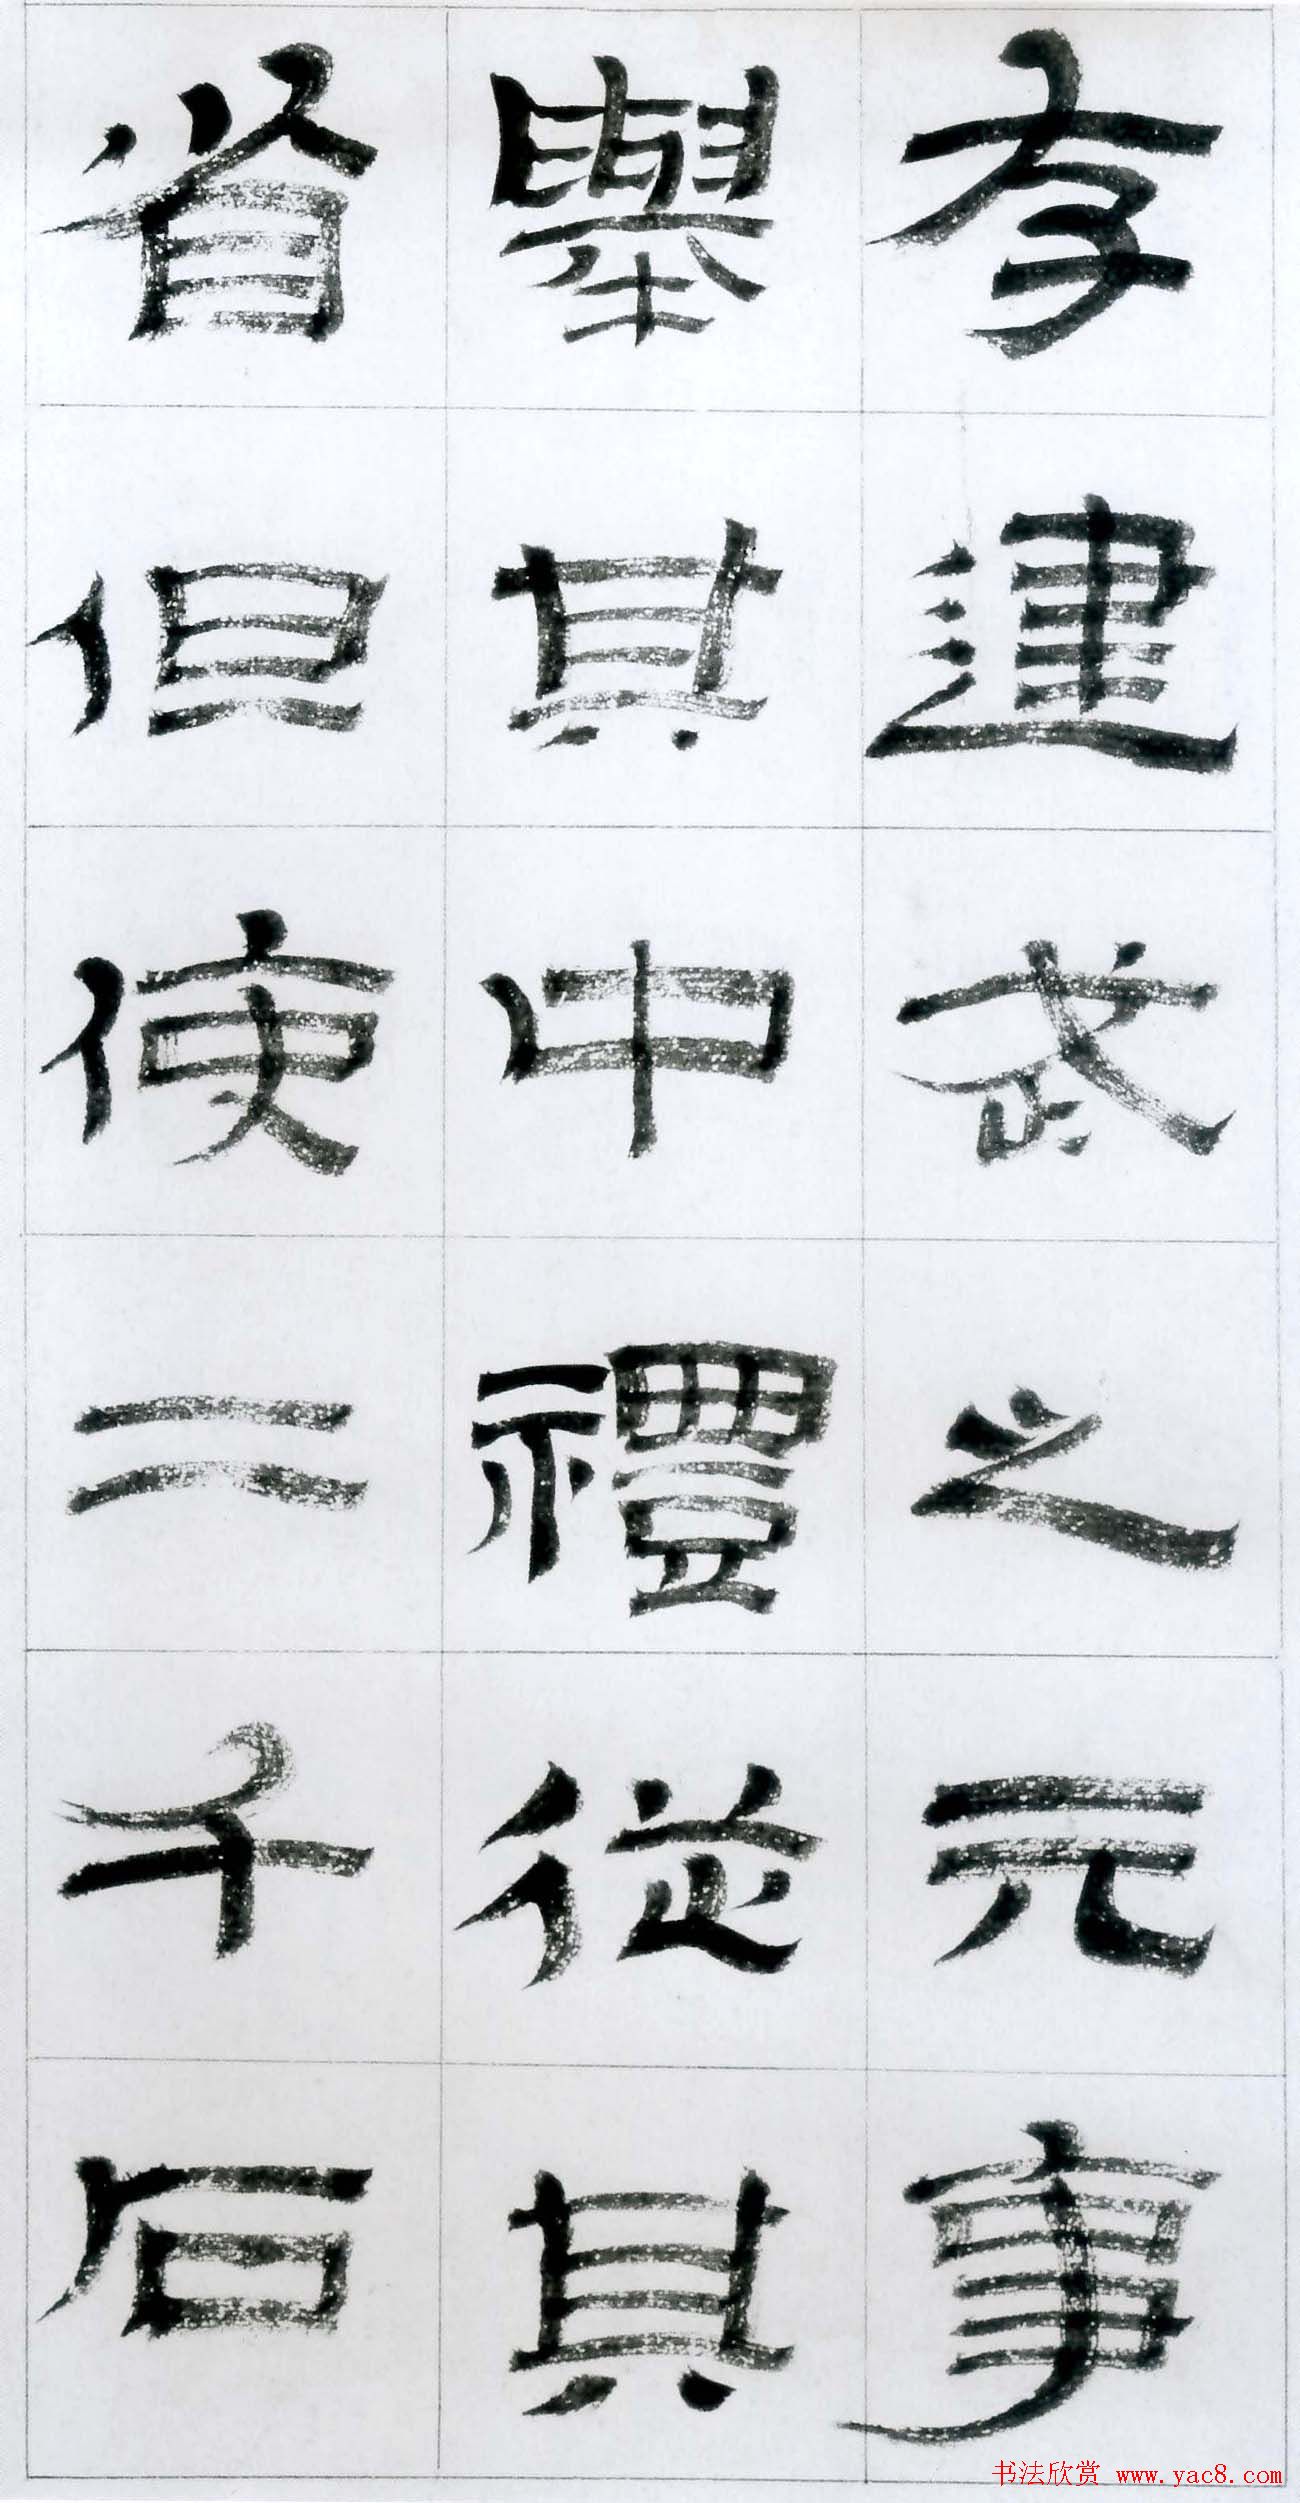 存建武之元事
舉其中禮從其
省但使二千石
书法欣赏 www.yac8.com